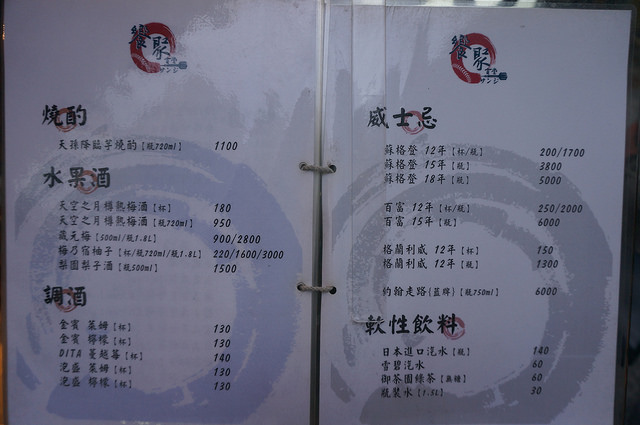 饗聚
燒酌
天孫降臨芋燒酌【瓶720ml】 1100
水果酒
天空之月樽熟梅酒【杯】 180
天空之月樽熟梅酒【瓶720ml】 950
蔵元梅【500ml/瓶1.8L】 900/2800
梅乃宿柚子【杯/瓶720ml/瓶1.8L】 220/1600/3000
梨園梨子酒【瓶500ml】 1500
調酒
金賓 萊姆【杯】 130
金賓 檸檬【杯】 130
DITA 蔓越莓【杯】 140
泡盛 萊姆【杯】 130
泡盛 檸檬【杯】 130
饗聚
威士忌
蘇格登 12年【杯/瓶】 200/1700
蘇格登 15年【瓶】 3800
蘇格登 18年【瓶】 5000
百富 12年【杯/瓶】 250/2000
百富 15年【瓶】 6000
格蘭利威 12年【杯】 150
格蘭利威 12年【瓶】 1300
約翰走路(藍牌)【瓶750ml】 6000
軟性飲料
日本進口汽水【瓶】 140
雪碧汽水 60
御茶園綠茶【無糖】 60
瓶裝水【1.5L】 30